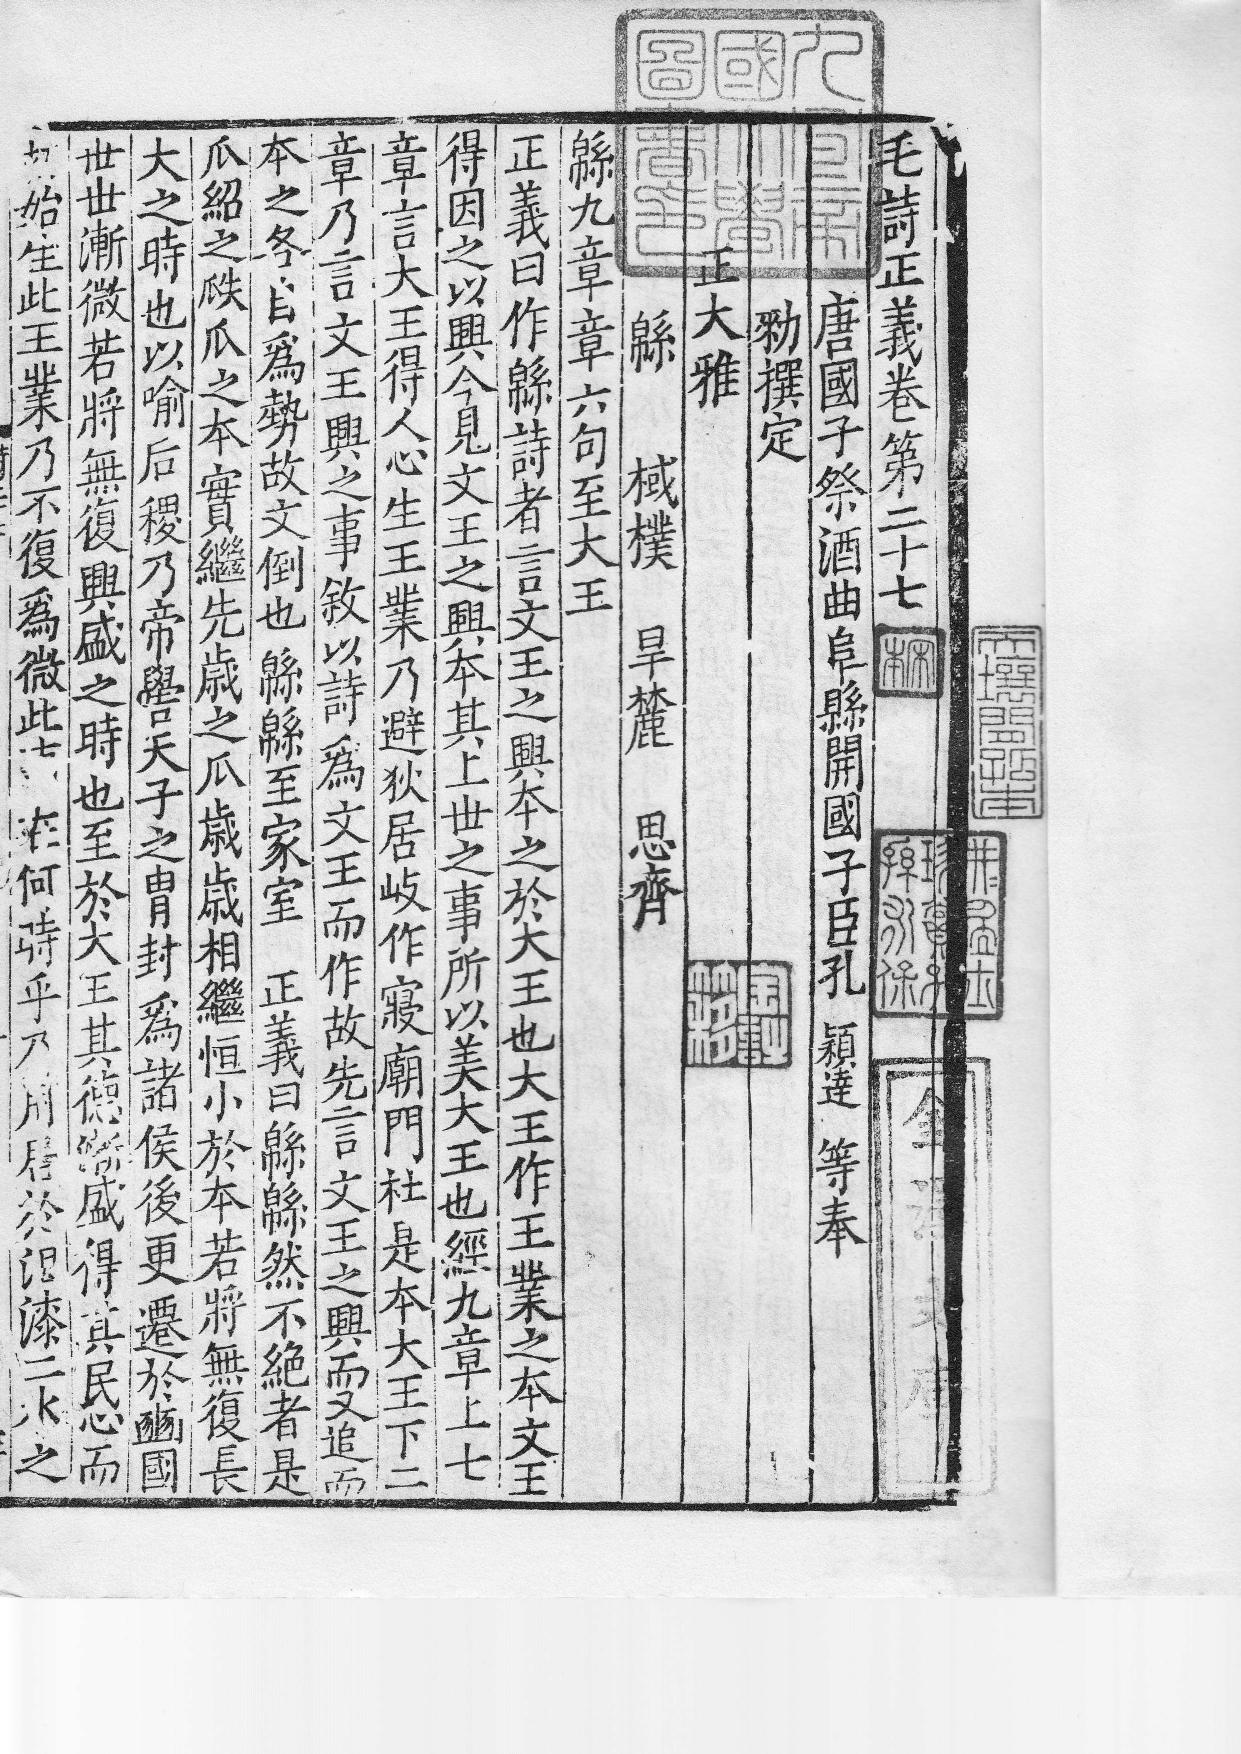 毛詩正義卷第二十七
唐國子祭酒曲阜縣開國子臣孔 穎達 等奉
勑撰定
正大雅
緜 棫樸 旱麓 思齊
緜九章章六句至大王
正義曰作緜詩者言文王之興本之於大王也大王作王業之本文王
得因之以興今見文王之興本其上世之事所以美大王也經九章上七
章言大王得人心生王業乃避狄居岐作寢廟門社是本大王下二
章乃言文王興之事敘以詩爲文王而作故先言文王之興而又追而
本之各自爲勢故文倒也 緜緜至家室 正義曰緜緜然不絶者是
瓜紹之瓞瓜之本實繼先歳之瓜歳歳相繼恒小於本若將無復長
大之時也以喻后稷乃帝嚳天子之胄封爲諸侯後更遷於豳國
世世漸微若將無復興盛之時也至於大王其德漸盛得其民心而
始生此王業乃不復爲微此 在何時乎乃用居於沮漆二水之